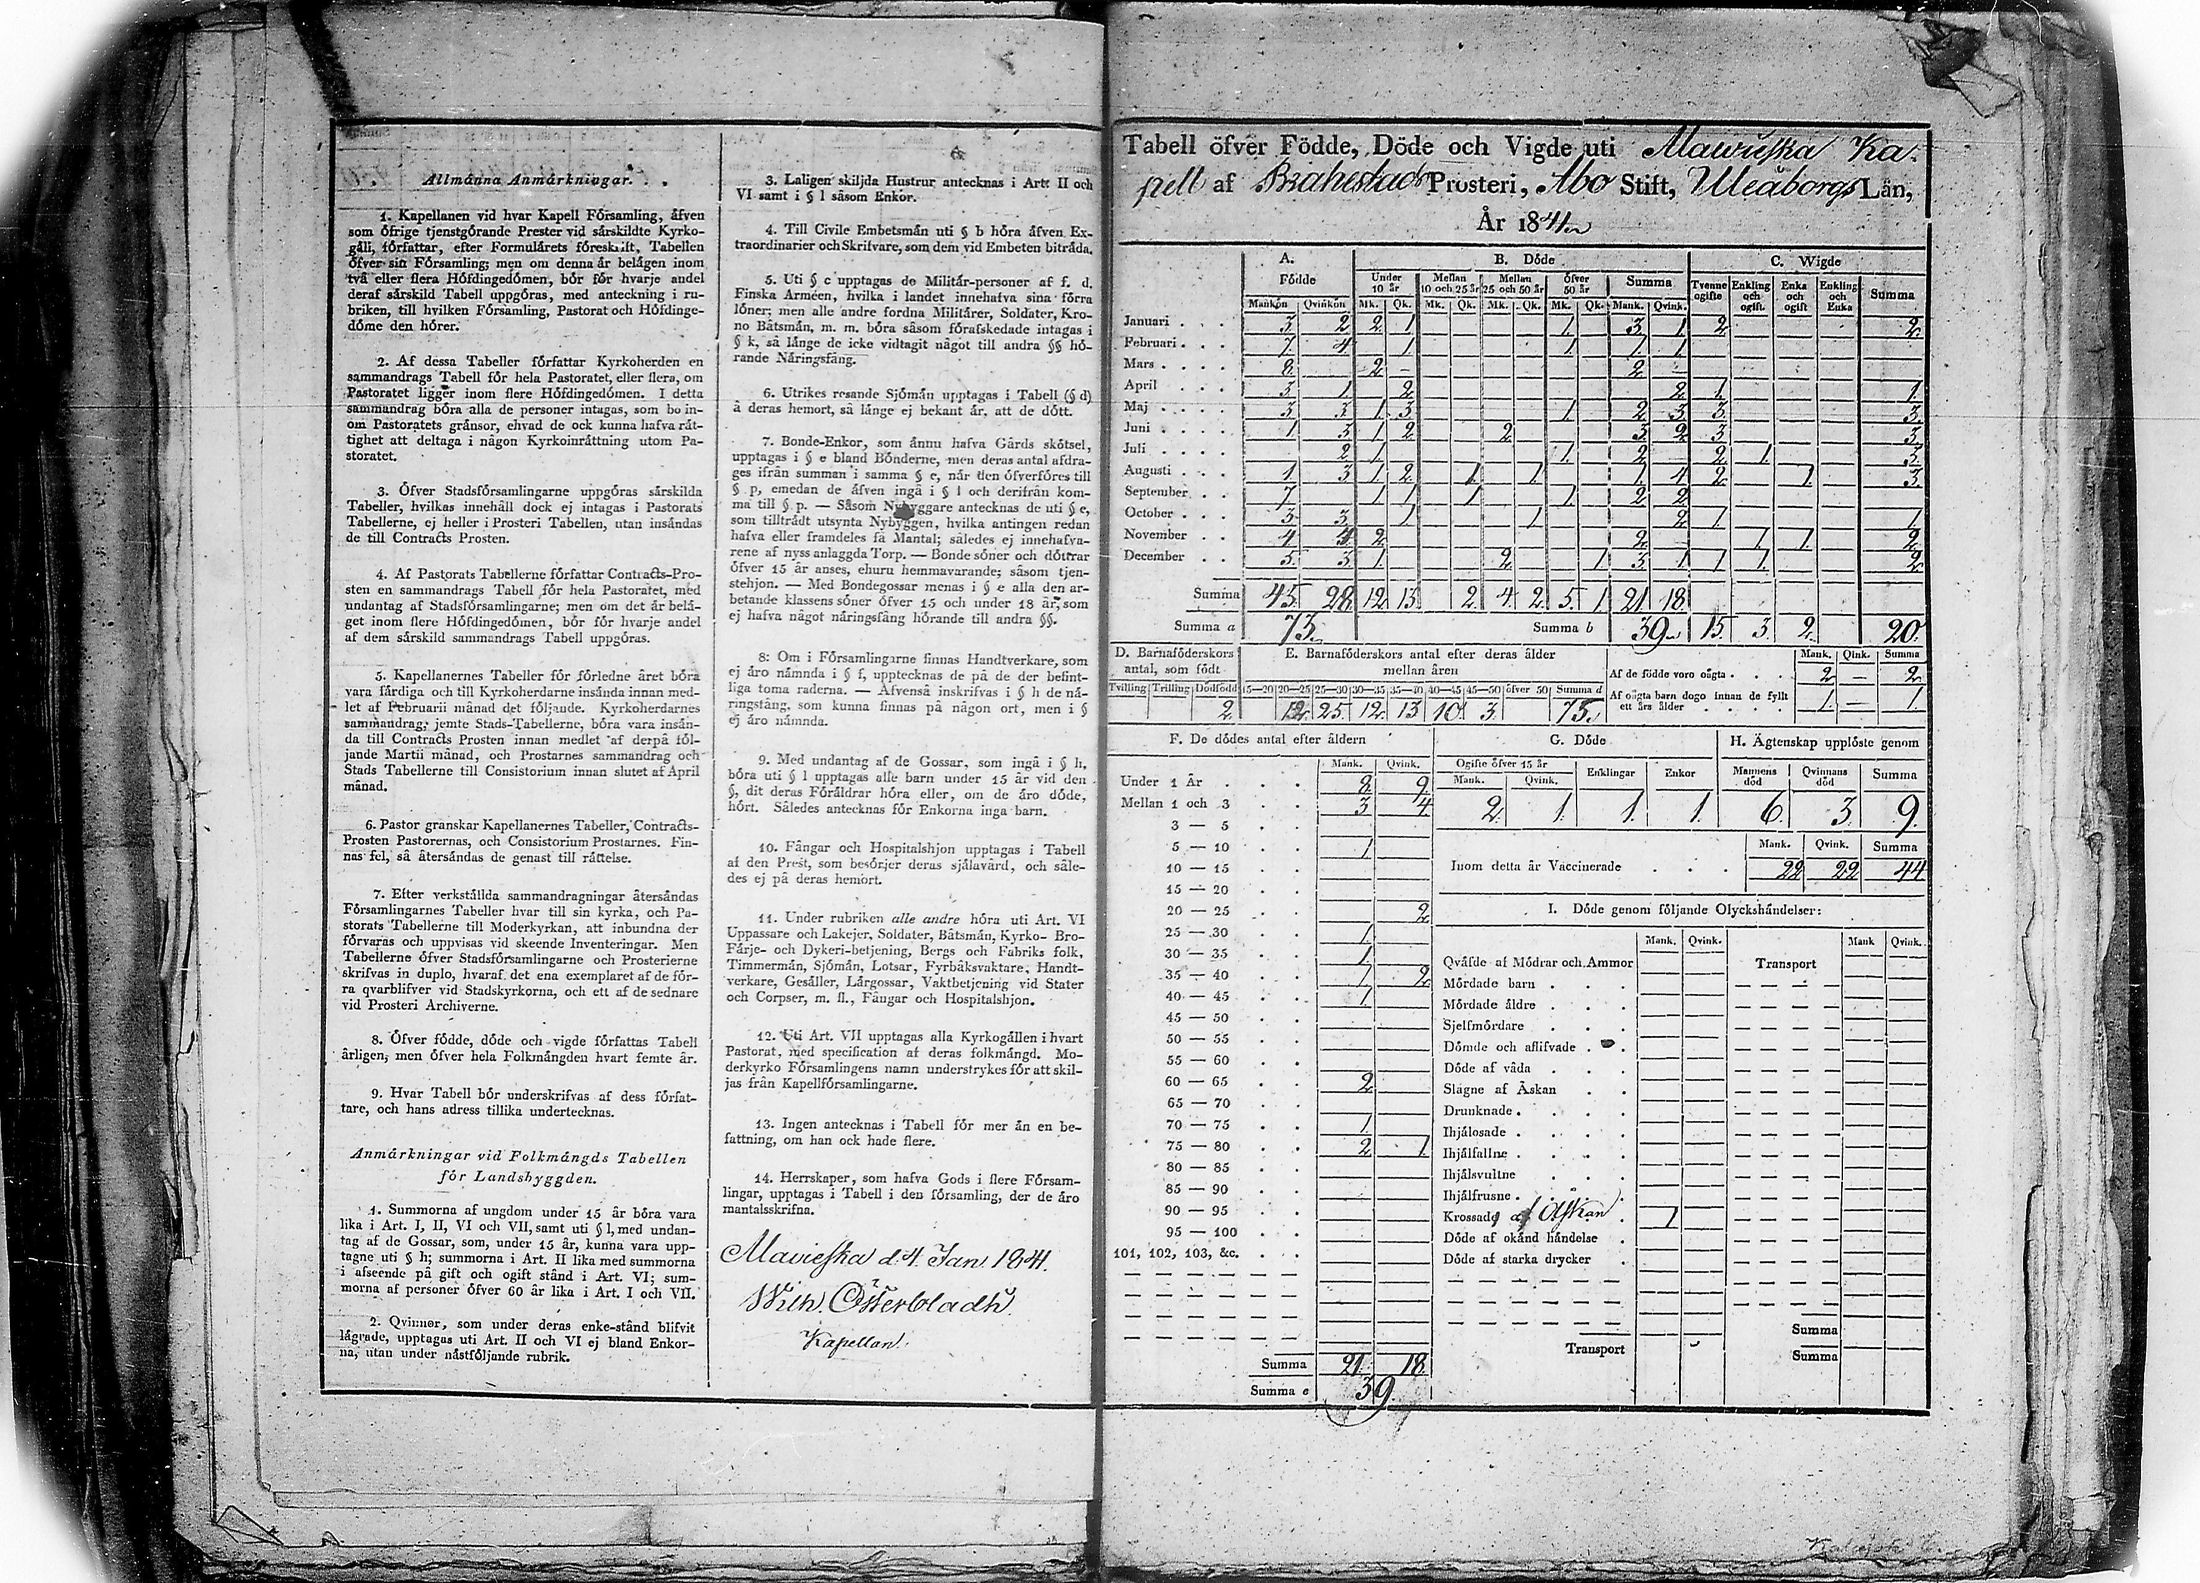 Allmänna Anmärkningar.
1. Kapellanen vid hvar Kapell Församling, äfven
som öfrige tjenstgörande Prester vid särskildte Kyrko-
gäll, författar, efter Formulärets föreskrift, Tabellen
öfver sin Församling; men om denna är belägen inom
två eller flera Höfdingedömen, bör för hvarje andel
deraf särskild Tabell uppgöras, med anteckning i ru-
briken, till hvilken Församling, Pastorat och Höfdinge-
döme den hörer.
2. Af dessa Tabeller författar Kyrkoherden en
sammandrags Tabell för hela Pastoratet, eller flera, om
Pastoratet ligger inom flere Höfdingedömen. I detta
sammandrag böra alla de personer intagas, som bo in-
om Pastoratets gränsor, ehvad de ock kunna hafva rät-
tighet att deltaga i någon Kyrkoinrättning utom Pa-
storatet.
3. Öfver Stadsförsamlingarne uppgöras särskilda
Tabeller, hvilkas innehåll dock ej intagas i Pastorats
Tabellerne, ej heller i Prosteri Tabellen, utan insändas
de till Contracts Prosten.
4. Af Pastorats Tabellerne författar Contracts-Pro-
sten en sammandrags Tabell för hela Pastoratet, med
undantag af Stadsförsamlingarne; men om det är belä-
get inom flere Höfdingedömen, bör för hvarje andel
af dem särskild sammandrags Tabell uppgöras.
5. Kapellanernes Tabeller för förledne året böra
vara färdiga och till Kyrkoherdarne insända innan med-
let af Februarii månad det följande. Kyrkoherdarnes
sammandrag, jemte Stads-Tabellerne, böra vara insän-
da till Contracts Prosten innan medlet af derpå föl-
jande Martii månad, och Prostarnes sammandrag och
Stads Tabellerne till Consistorium innan slutet af April
månad.
6. Pastor granskar Kapellanernes Tabeller, Contracts-
Prosten Pastorernas, och Consistorium Prostarnes. Fin-
nas fel, så återsändas de genast till rättelse.
7. Efter verkställda sammandragningar återsändas
Församlingarnes Tabeller hvar till sin kyrka, och Pa-
storats Tabellerne till Moderkyrkan, att inbundna der
förvaras och uppvisas vid skeende Inventeringar. Men
Tabellerne öfver Stadsförsamlingarne och Prosterierne
skrifvas in duplo, hvaraf det ena exemplaret af de för-
ra qvarblifver vid Stadskyrkorna, och ett af de sednare
vid Prosteri Archiverne.
8. Öfver födde, döde och vigde författas Tabell
årligen, men öfver hela Folkmängden hvart femte år.
9. Hvar Tabell bör underskrifvas af dess förfat-
tare, och hans adress tillika undertecknas.
Anmärkningar vid Folkmängds Tabellen
för Landsbyggden.
1. Summorna af ungdom under 15 år böra vara
lika i Art. I, II, VI och VII, samt uti § l, med undan-
tag af de Gossar, som, under 15 år, kunna vara upp-
tagne uti § h; summorna i Art. II lika med summorna
i afseende på gift och ogift stånd i Art. VI; sum-
morna af personer öfver 60 år lika i Art. I och VII.
2. Qvinnor, som under deras enke-stånd blifvit
lägrade, upptagas uti Art. II och VI ej bland Enkor-
na, utan under nästföljande rubrik.
3. Laligen skiljda Hustrur antecknas i Art. II och
VI samt i § l såsom Enkor.
4. Till Civile Embetsmän uti § b höra äfven Ex-
traordinarier och Skrifvare, som dem vid Embeten biträda.
5. Uti § c upptagas de Militär-personer af f. d.
Finska Armeen, hvilka i landet innehafva sina förra
löner; men alle andre fordna Militärer, Soldater, Kro-
no Båtsmän, m. m. böra såsom förafskedade intagas i
§ k, så länge de icke vidtagit något till andra §§ hö-
rande Näringsfång.
6. Utrikes resande Sjömän upptagas i Tabell (§ d)
å deras hemort, så länge ej bekant är, att de dött.
7. Bonde-Enkor, som ännu hafva Gårds skötsel,
upptagas i § e bland Bönderne, men deras antal afdra-
ges ifrån summan i samma § e, når den öfverföres till
§ p, emedan de äfven ingå i § l och derifrån kom-
ma till § p. — Såsom Nybyggare antecknas de uti § e,
som tillträdt utsynta Nybyggen, hvilka antingen redan
hafva eller framdeles få Mantal; således ej innehafva-
rene af nyss anlaggda Torp. — Bonde söner och döttrar
öfver 15 år anses, ehuru hemmavarande; såsom tjen-
stehjon. — Med Bondegossar menas i § e alla den ar-
betande klassens söner öfver 15 och under 18 år, som
ej hafva något näringsfång hörande till andra §§.
8: Om i Församlingarne finnas Handtverkare, som
ej äro nämnda i § f, upptecknas de på de der befint-
liga toma raderna. — Äfvenså inskrifvas i § h de nä-
ringsfång, som kunna finnas på någon ort, men i §
ej äro nämnda.
9. Med undantag af de Gossar, som ingå i § h,
böra uti § l upptagas alle barn under 15 år vid den
§, dit deras Föräldrar höra eller, om de äro döde,
hört. Således antecknas för Enkorna inga barn.
10. Fångar och Hospitalshjon upptagas i Tabell
af den Prest, som besörjer deras själavård, och såle-
des ej på deras hemort.
11. Under rubriken alle andre höra uti Art. VI
Uppassare och Lakejer, Soldater, Båtsmän, Kyrko- Bro-
Färje- och Dykeri-betjening, Bergs och Fabriks folk,
Timmermän, Sjömän, Lotsar, Fyrbåksvaktare, Handt-
verkare, Gesäller, Lärgossar, Vaktbetjening vid Stater
och Corpser, m. fl., Fångar och Hospitalshjon.
12. Uti Art. VII upptagas alla Kyrkogällen i hvart
Pastorat, med specification af deras folkmängd. Mo-
derkyrko Församlingens namn understrykes för att skil-
jas från Kapellförsamlingarne.
13. Ingen antecknas i Tabell för mer än en be-
fattning, om han ock hade flere.
14. Herrskaper, som hafva Gods i flere Försam-
lingar, upptagas i Tabell i den församling, der de äro
mantalsskrifna.
Mavieska d. 4. Jan 1841.
Wilh. Österbladh
Kapellan.
Tabell öfver Födde, Döde och Vigde uti Mawieska Ka-
pell af Brahestads Prosteri, Åbo Stift, Uleåborgs Län,
År 1841
A. B. Döde C. Wigde
Födde Under 10 år Mellan 10 och 25 år Mellan 25 och 50 år Öfver 50 år Summa Tvenne ogifte Enkling och ogift. Enka och ogift Enkling och Enka Summa
Mankön Qvinkön Mk. Qk. Mk. Qk. Mk. Qk. Mk. Qk. Mank. Qvink.
Januari 3 2 2 1 1 3 1 2 2
Februari 7 4 1 1 1 1
Mars 8 2 – 2 –
April 3 1 2 2 1 1
Maj 3 3 1 3 1 2 3 3 3
Juni 1 3 1 2 2 3 2 3 3
Juli 2 1 1 2 – 2 1 3
Augusti 1 3 1 2 1 1 1 4 2 1 3
September 7 1 1 1 1 2 2
October 3 3 1 1 2 1 1
November 4 4 2 2 1 1 2
December 5 3 1 2 1 3 1 1 1 2
Summa 45 28 12 13 2 4 2 5 1 21 18
Summa a 73 Summa b 39 15 3 2 20
D. Barnaföderskors antal, som födt
Tvilling Trilling Dödfödd
2
E. Barnaföderskors antal efter deras ålder
mellan åren
15—20 20—25 25—30 30—35 35—40 40—45 45—50 öfver 50 Summa d
12 25 12 13 10 3 75
Mank. Qink. Summa
Af de födde voro oägta 2 — 2
Af oägta barn dogo innan de fyllt
ett års ålder 1 — 1
F. De dödes antal efter åldern
Mank. Qvink.
Under 1 År 8 9
Mellan 1 och 3 3 4
3 — 5
5 — 10 1
10 — 15
15 — 20
20 — 25 2
25 — 30 1
30 — 35 1
35 — 40 1 2
40 — 45 1
45 — 50
50 — 55
55 — 60
60 — 65 2
65 — 70
70 — 75 1
75 — 80 2 1
80 — 85
85 — 90
90 — 95
95 — 100
101, 102, 103, &c.
Summa 21 18
Summa e 39
G. Döde
Ogifte öfver 15 år Enklingar Enkor
Mank. Qvink.
2 1 1 1
H. Ägtenskap upplöste genom
Mannens död Qvinnans död Summa
6 3 9
Mank. Qvink. Summa
Inom detta år Vaccinerade 22 22 44
I. Döde genom följande Olyckshändelser:
Mank. Qvink. Mank Qvink.
Qväfde af Mödrar och Ammor Transport
Mördade barn
Mördade äldre
Sjelfmördare
Dömde och aflifvade
Döde af våda
Slägne af Åskan
Drunknade
Ihjälosade
Ihjälfallne
Ihjälsvultne
Ihjälfrusne
Krossade af Åskan 1
Döde af okänd händelse
Döde af starka drycker
Summa
Transport
Summa